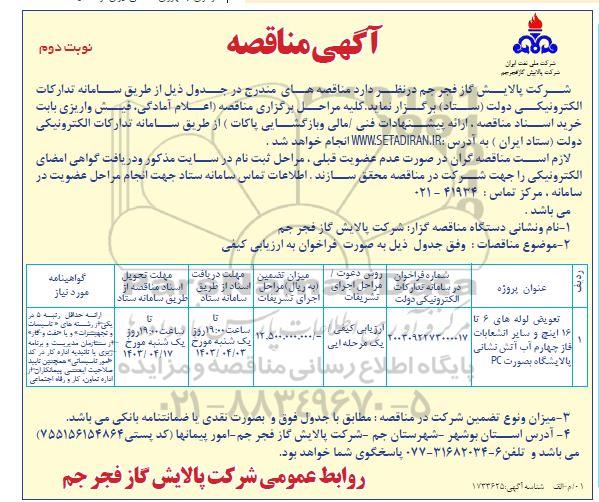 آگهی مناقصه
نوبت دوم
شرکت ملی نفت ایران
شرکت پالایش گاز فجر جم
شـــرکت پالایـــش گاز فجر جم درنظـــر دارد مناقصه هـــای مندرج در جـــدول ذیل از طریق ســـامانه تدارکات
الکترونیکـــی دولت (ســـتاد) برگـــزار نماید.کلیه مراحـــل برگزاری مناقصه (اعـــلام آمادگی، فیـــش واریزی بابت
خرید اســـناد مناقصه ، ارائه پیشـــنهادات فنی /مالی وبازگشـــایی پاکات ) از طریق ســـامانه تدارکات الکترونیکی
دولت (ستاد ایران ) به آدرس :WWW.SETADIRAN.IR انجام خواهد شد .
لازم اســـت مناقصه گران در صورت عدم عضویت قبلی ، مراحل ثبت نام در ســـایت مذکور ودریافت گواهی امضای
الکترونیکی را جهت شـــرکت در مناقصه محقق ســـازند . اطلاعات تماس سامانه ستاد جهت انجام مراحل عضویت در
سامانه ، مرکز تماس : ۴۱۹۳۴ - ۰۲۱
می باشد .
۱-نام ونشانی دستگاه مناقصه گزار: شرکت پالایش گاز فجر جم
۲-موضوع مناقصات : وفق جدول ذیل به صورت فراخوان به ارزیابی کیفی
ردیف
عنوان پروژه
شماره فراخوان
در سامانه تدارکات
الکترونیکی دولت
روش دعوت /
مراحل اجرای
تشریفات
میزان تضمین
(به ریال)مراحل
اجرای تشریفات
مهلت دریافت
اسناد از طریق
سامانه ستاد
مهلت تحویل
اسناد مناقصه از
طریق سامانه ستاد
گواهینامه
مورد نیاز
۱
تعویض لوله های ۶ تا
۱۶ اینچ و سایر انشعابات
فاز چهارم آب آتش نشانی
پالایشگاه بصورت PC
۲۰۰۳۰۹۲۲۷۳۰۰۰۰۱۷
ارزیابی کیفی /
یک مرحله ایی
۱۲,۵۰۰,۰۰۰,۰۰۰/-
تا
ساعت۱۹:۰۰روز
یک شنبه مورخ
۱۴۰۳/۰۴/۰۳
تا
ساعت۱۹:۰۰روز
یک شنبه مورخ
۱۴۰۳/۰۴/۱۷
ارائه حداقل رتبه ۵ در
یکی از رشته های « تاسیسات
و تجهیزات » و یا «نفت و گاز»
از سازمان مدیریت و برنامه
ریزی یا تائیدیه اداره کار در کد
«امور تاسیساتی» همچنین تایید
صلاحیت ایمنی پیمانکاران از
اداره تعاون، کار و رفاه اجتماعی
۳-میزان ونوع تضمین شرکت در مناقصه : مطابق با جدول فوق و بصورت نقدی یا ضمانتنامه بانکی می باشد.
۴- آدرس اســـتان بوشهر -شهرستان جم -شرکت پالایش گاز فجر جم-امور پیمانها (کد پستی۷۵۵۱۵۶۱۵۴۸۶۴)
می باشد و تلفن۶-۳۱۶۸۲۰۳۴-۰۷۷ پاسخگوی شما خواهد بود.
روابط عمومی شرکت پالایش گاز فجر جم
۰۱/م-الف شناسه آگهی:۱۷۳۳۶۲۵
پایگاه اطلاع رسانی مناقصه و مزایده
۰۲۱-۸۸۳۴۹۶۷۰-۵